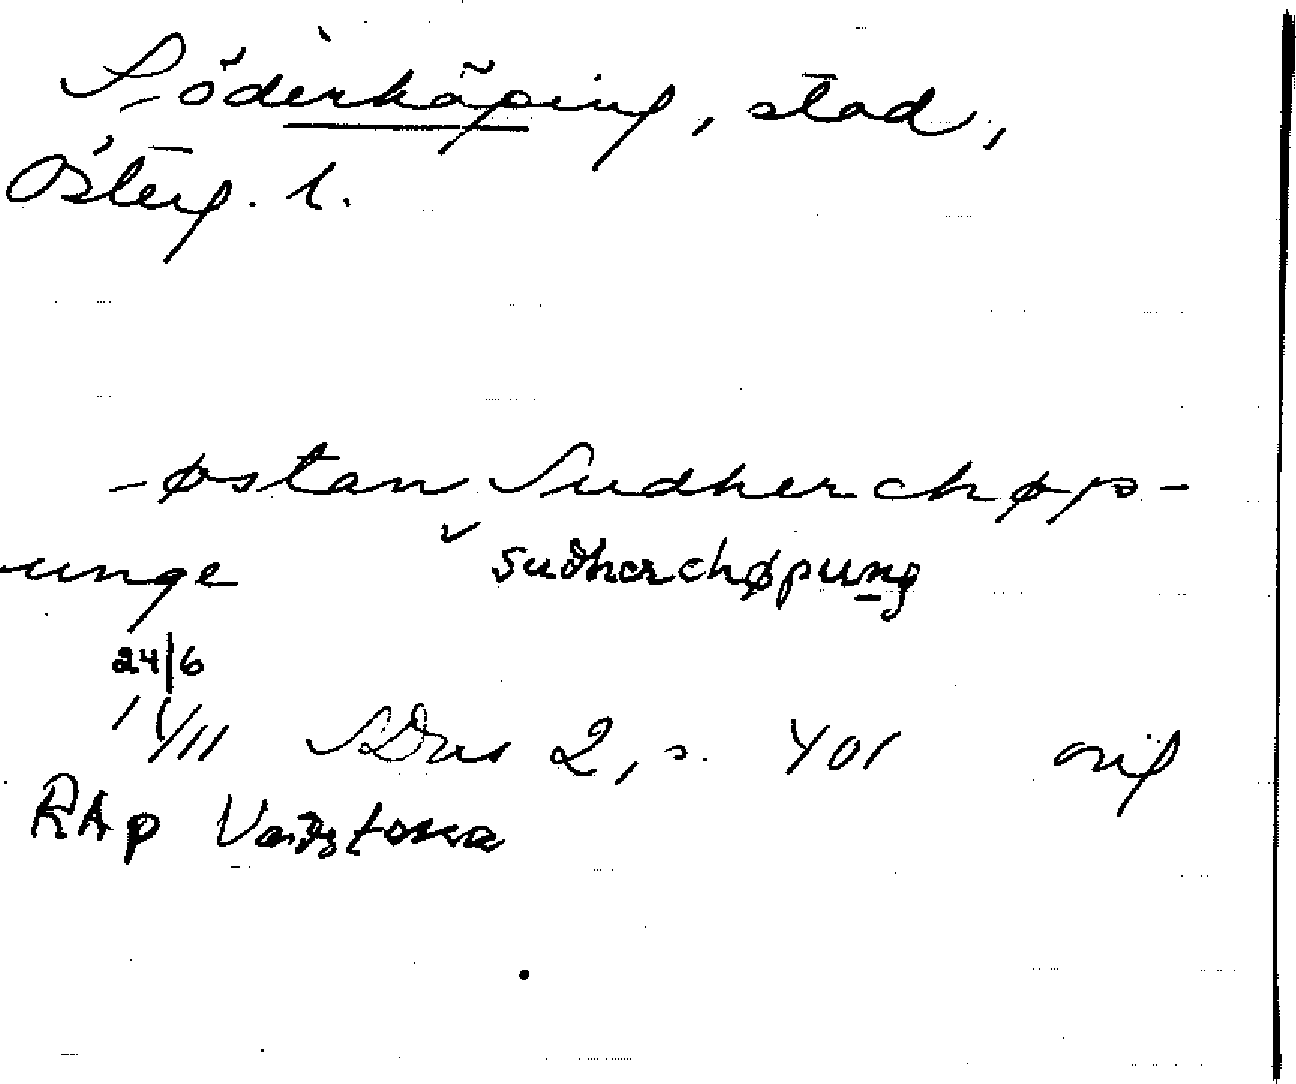 Söderköping, stad,
Österg. l.
- østan Sudherchøp-
unge
sudherchøpung
24/6
1411 SDns 2, s. 401 orig
RAp Vadstena